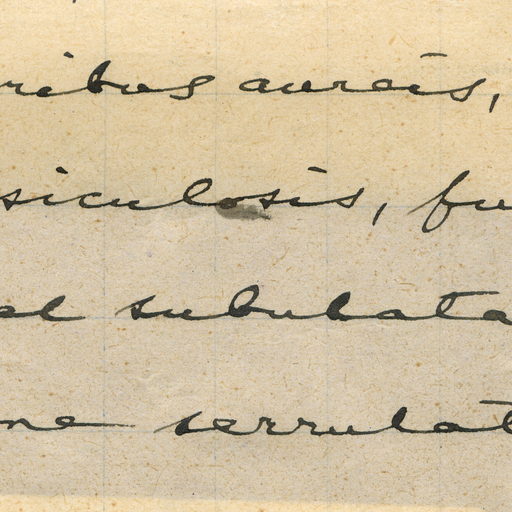 ribus aureis,
siculosis, fu
el subulata
ne serrulat